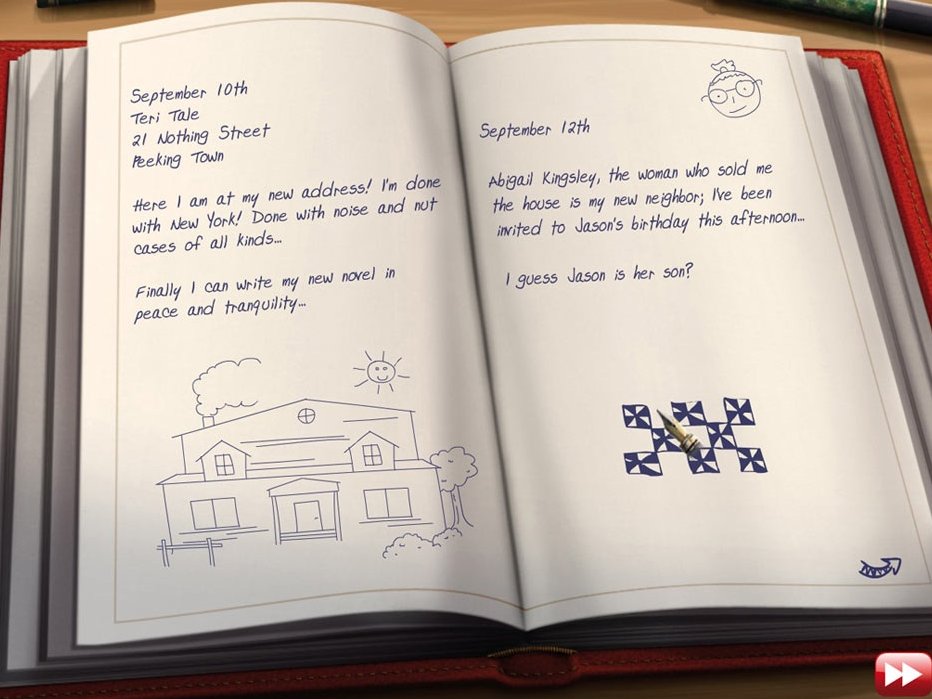 September 10th
Teri Tale
21 Nothing Street
Peeking Town
Here I am at my new address! I'm done
with New York! Done with noise and nut
cases of all kinds...
Finally I can write my new novel in
peace and tranquility...
September 12th
Abigail Kingsley, the woman who sold me
the house is my new neighbor; I've been
invited to Jason's birthday this afternoon...
I guess Jason is her son?